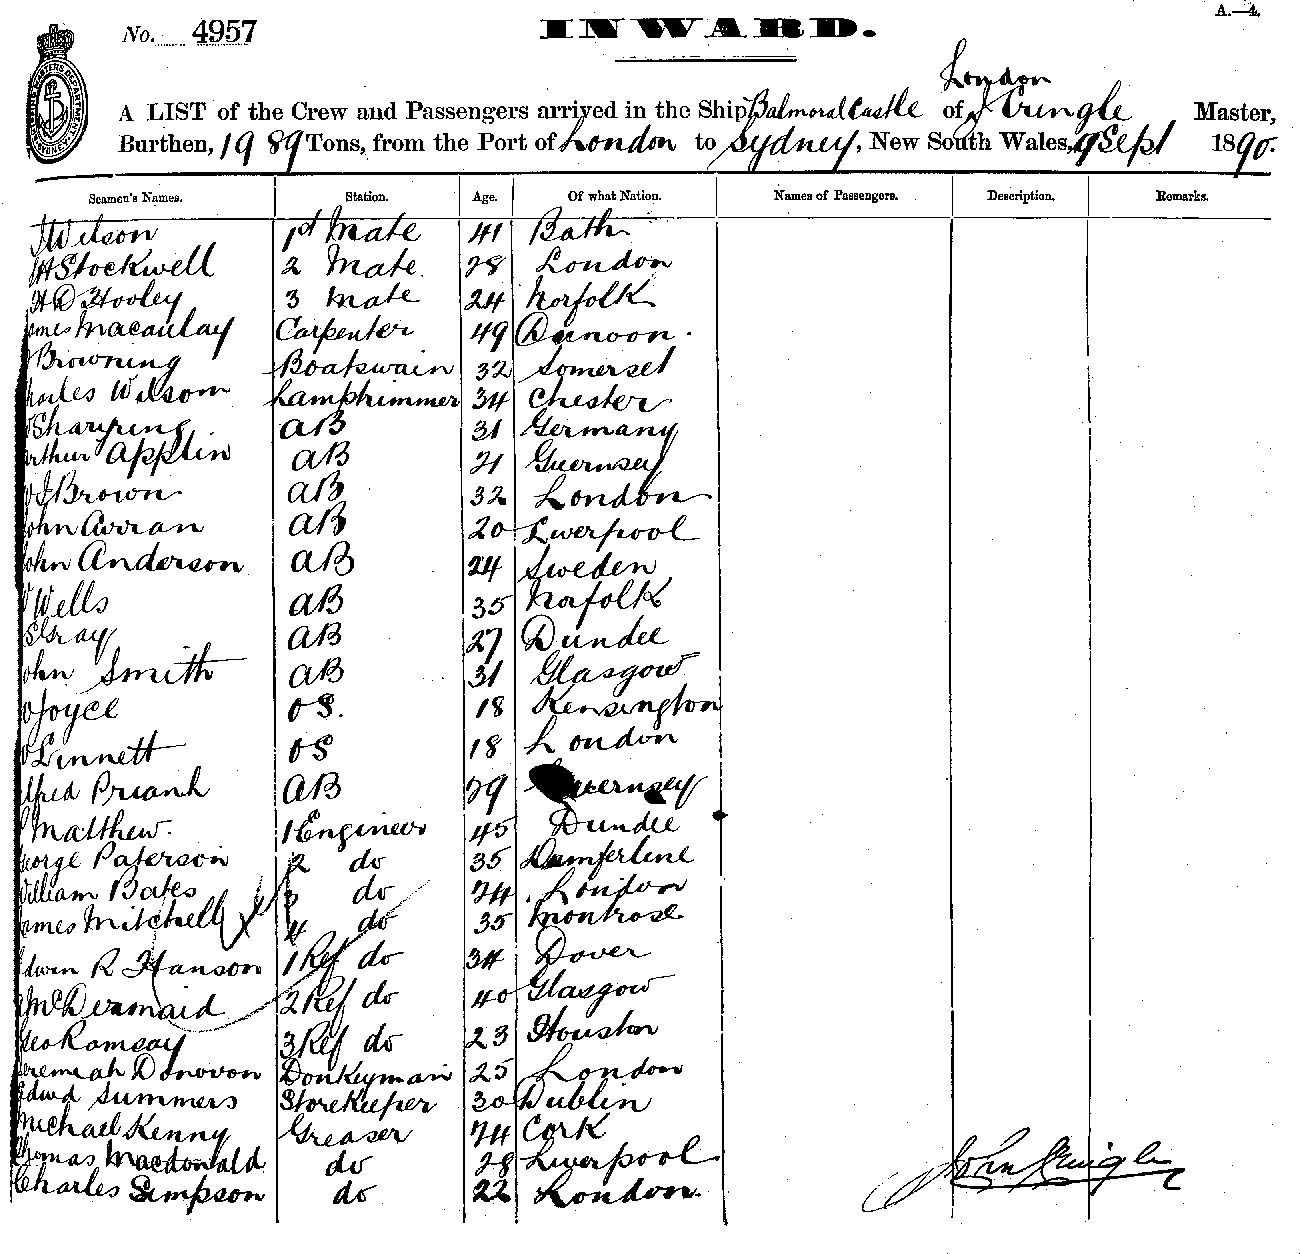 A.—4.
No. 4957
INWARD.
London
A LIST of the Crew and Passengers arrived in the Ship Balmoral Castle of J Pringle Master,
Burthen, 1989 Tons, from the Port of London to Sydney, New South Wales, 9 Sept 1890.
Seamen's Names. Station. Age. Of what Nation. Names of Passengers. Description. Remarks.
Wilson 1st Mate 41 Bath
H Stockwell 2 Mate 28 London
H D Hooley 3 Mate 24 Norfolk
ames Macaulay Carpenter 49 Dunoon.
Browning Boatswain 32 Somerset
harles Wilson Lamptrimmer 34 Chester
Sharping AB 31 Germany
rthur Applin AB 21 Guernsey
J Brown AB 32 London
ohn Curran AB 20 Liverpool
ohn Anderson AB 24 Sweden
Wells AB 35 Norfolk
Gray AB 27 Dundee
ohn Smith AB 31 Glasgow
Joyce OS. 18 Kensington
Linnett OS 18 London
lfred Priank AB 29 Guernsey
Matthew. 1 Engineer 45 Dundee
eorge Paterson 2 do 35 Dumferline
William Bates 3 do 24 London
ames Mitchell 4 do 35 Montrose
dwin R Hanson 1 Ref do 34 Dover
McDermaid 2 Ref do 40 Glasgow
Geo Ramsay 3 Ref do 23 Houston
eremiah Donovon Donkeyman 25 London
Edwd Summers Storekeeper 30 Dublin
Michael Kenny Greaser 24 Cork
Thomas Macdonald do 28 Liverpool
Charles Simpson do 22 London.
John Pringle